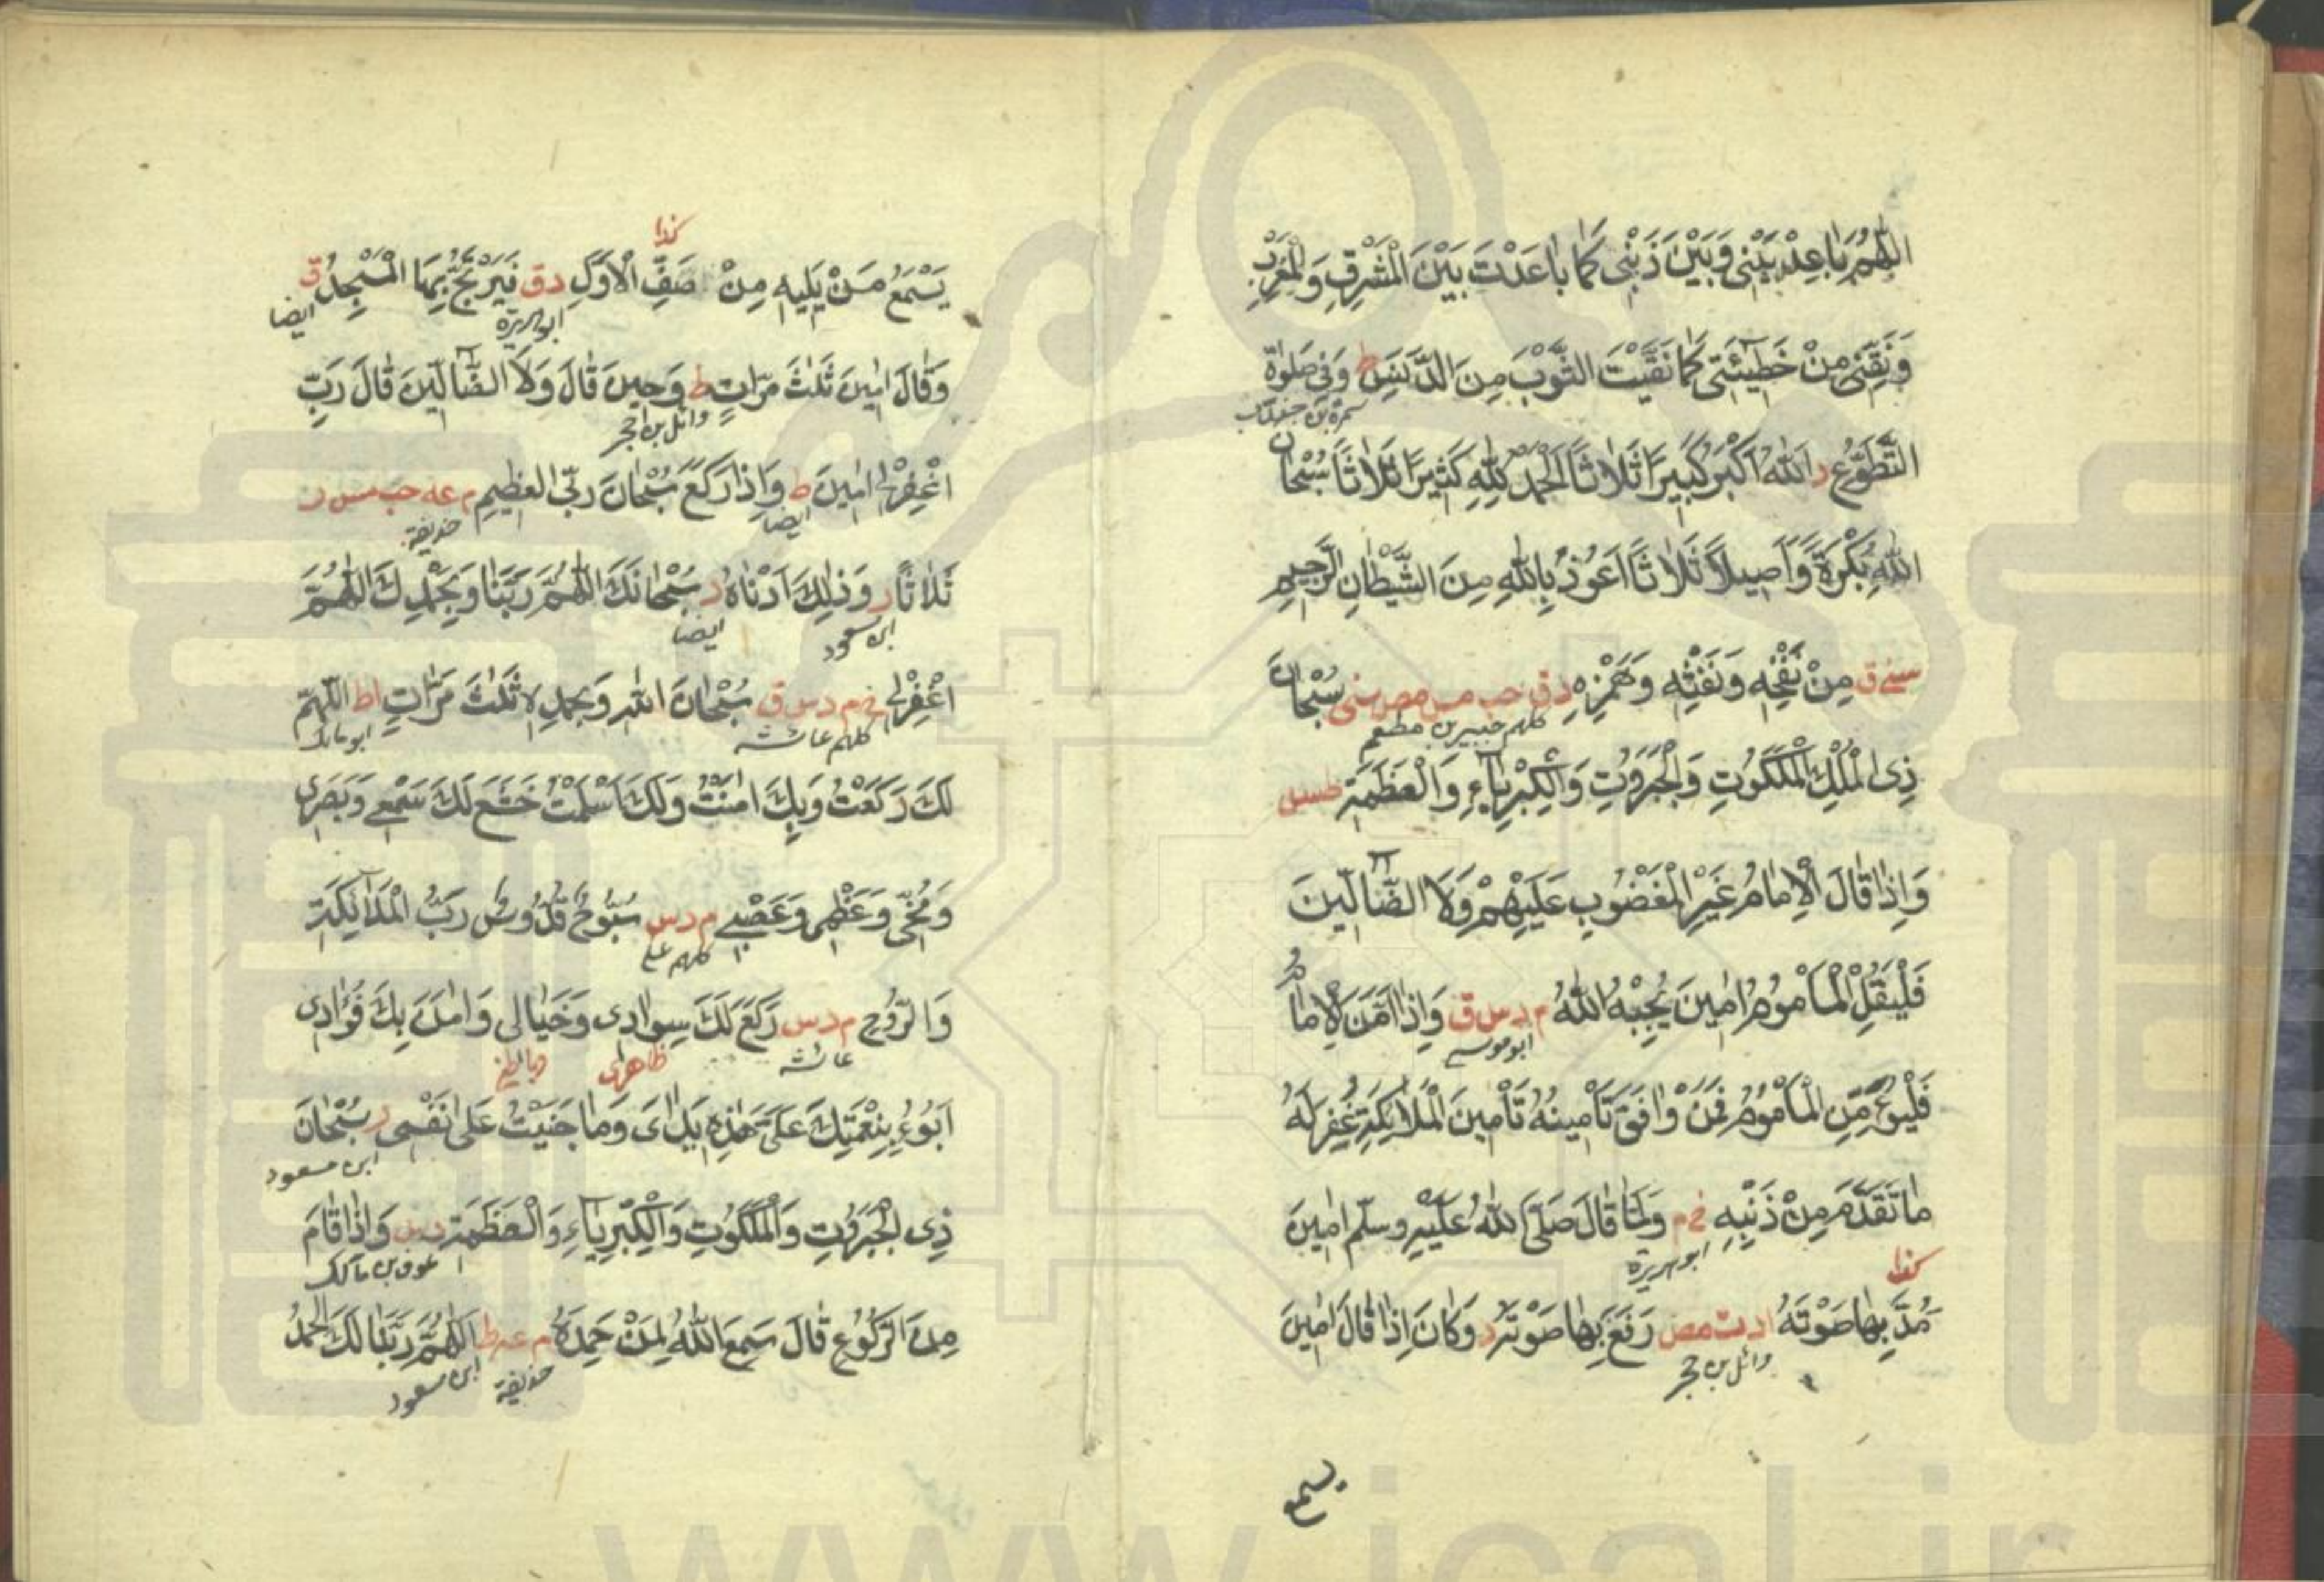 اللّٰهُمَّ بَاعِدْ بَيْنِي وَبَيْنَ ذَنْبِي كَمَا بَاعَدْتَ بَيْنَ الْمَشْرِقِ وَالْمَغْرِبِ
وَنَقِّنِي مِنْ خَطِيْٓئَتِي كَمَا نَقَّيْتَ الثَّوْبَ مِنَ الدَّنَسِ ط وَفِي صَلٰوةِ
سمرة بن جندب
التَّطَوُّعِ د اَللّٰهُ اَكْبَرُ كَبِيْرًا ثَلَاثًا اَلْحَمْدُ لِلّٰهِ كَثِيْرًا ثَلَاثًا سُبْحَانَ
اللّٰهِ بُكْرَةً وَّاَصِيلًا ثَلَاثًا اَعُوْذُ بِاللّٰهِ مِنَ الشَّيْطَانِ الرَّجِيْمِ
مِنْ نَفْخِهِ وَنَفْثِهِ وَهَمْزِهِ د ق حب مس مص سنى سُبْحَانَ
كلهم جبير بن مطعم
ذِى الْمُلْكِ الْمَلَكُوْتِ وَالْجَبَرُوْتِ وَالْكِبْرِيَآءِ وَالْعَظَمَةِ طس
وَاِذَا قَالَ الْاِمَامُ غَيْرِ الْمَغْضُوْبِ عَلَيْهِمْ وَلَا الضَّآلِّيْنَ
فَلْيَقُلِ الْمَأْمُوْمُ اٰمِيْنَ يُجِبْهُ اللّٰهُ م د س ق وَاِذَا اَمَّنَ الْاِمَامُ
ابو موسى
فَلْيُؤَمِّنِ الْمَأْمُوْمُ فَمَنْ وَافَقَ تَأْمِينُهُ تَأْمِينَ الْمَلَائِكَةِ غُفِرَ لَهُ
مَا تَقَدَّمَ مِنْ ذَنْبِهِ خ م وَلَمَّا قَالَ صَلَّى اللّٰهُ عَلَيْهِ وسلّم اٰمِيْنَ
ابو هريرة
كذا
مَدَّ بِهَا صَوْتَهُ ا د ت مص رَفَعَ بِهَا صَوْتَهُ د وَكَانَ اِذَا قَالَ اٰمِيْنَ
وائل بن حجر
يسمع
كذا
يَسْمَعُ مَنْ يَلِيهِ مِنْ صَفِّ الْاَوَّلِ د ق فَيَرْتَجُّ بِهَا الْمَسْجِدُ ق
ابو هريرة ايضا
وَقَالَ اٰمِيْنَ ثَلٰثَ مَرَّاتٍ ط وَحِيْنَ قَالَ وَلَا الضَّآلِّيْنَ قَالَ رَبِّ
وائل بن حجر
اغْفِرْلِي اٰمِيْنَ ط وَاِذَا رَكَعَ سُبْحَانَ رَبِّيَ الْعَظِيْمِ م عه حب مس ر
ايضا حذيفة
ثَلَاثًا ر وَذٰلِكَ اَدْنَاهُ د سُبْحَانَكَ اللّٰهُمَّ رَبَّنَا وَبِحَمْدِكَ اللّٰهُمَّ
ابن مسعود ايضا
اغْفِرْلِي خ م د س ق سُبْحَانَ اللّٰهِ وَبِحَمْدِهِ ثَلٰثَ مَرَّاتٍ ا ط اللّٰهُمَّ
كلهم عائشة ابو مالك
لَكَ رَكَعْتُ وَبِكَ اٰمَنْتُ وَلَكَ اَسْلَمْتُ خَشَعَ لَكَ سَمْعِي وَبَصَرِى
وَمُخِّي وَعَظْمِي وَعَصَبِي م د س سُبُّوْحٌ قُدُّوْسٌ رَبُّ الْمَلَآئِكَةِ
كلهم علي
وَالرُّوْحِ م د س رَكَعَ لَكَ سَوَادِى وَخَيَالِى وَاٰمَنَ بِكَ فُؤَادِى
عائشة ظاهرى وباطني
اَبُوْءُ بِنِعْمَتِكَ عَلَيَّ هٰذِهِ يَدَاىَ وَمَا جَنَيْتُ عَلَى نَفْسِى ر سُبْحَانَ
ابن مسعود
ذِى الْجَبَرُوْتِ وَالْمَلَكُوْتِ وَالْكِبْرِيَآءِ وَالْعَظَمَةِ د س وَاِذَا قَامَ
عوف بن مالك
مِنَ الرُّكُوْعِ قَالَ سَمِعَ اللّٰهُ لِمَنْ حَمِدَهُ م عه ط اَللّٰهُمَّ رَبَّنَا لَكَ الْحَمْدُ
حذيفة ابن مسعود
www.ical.ir